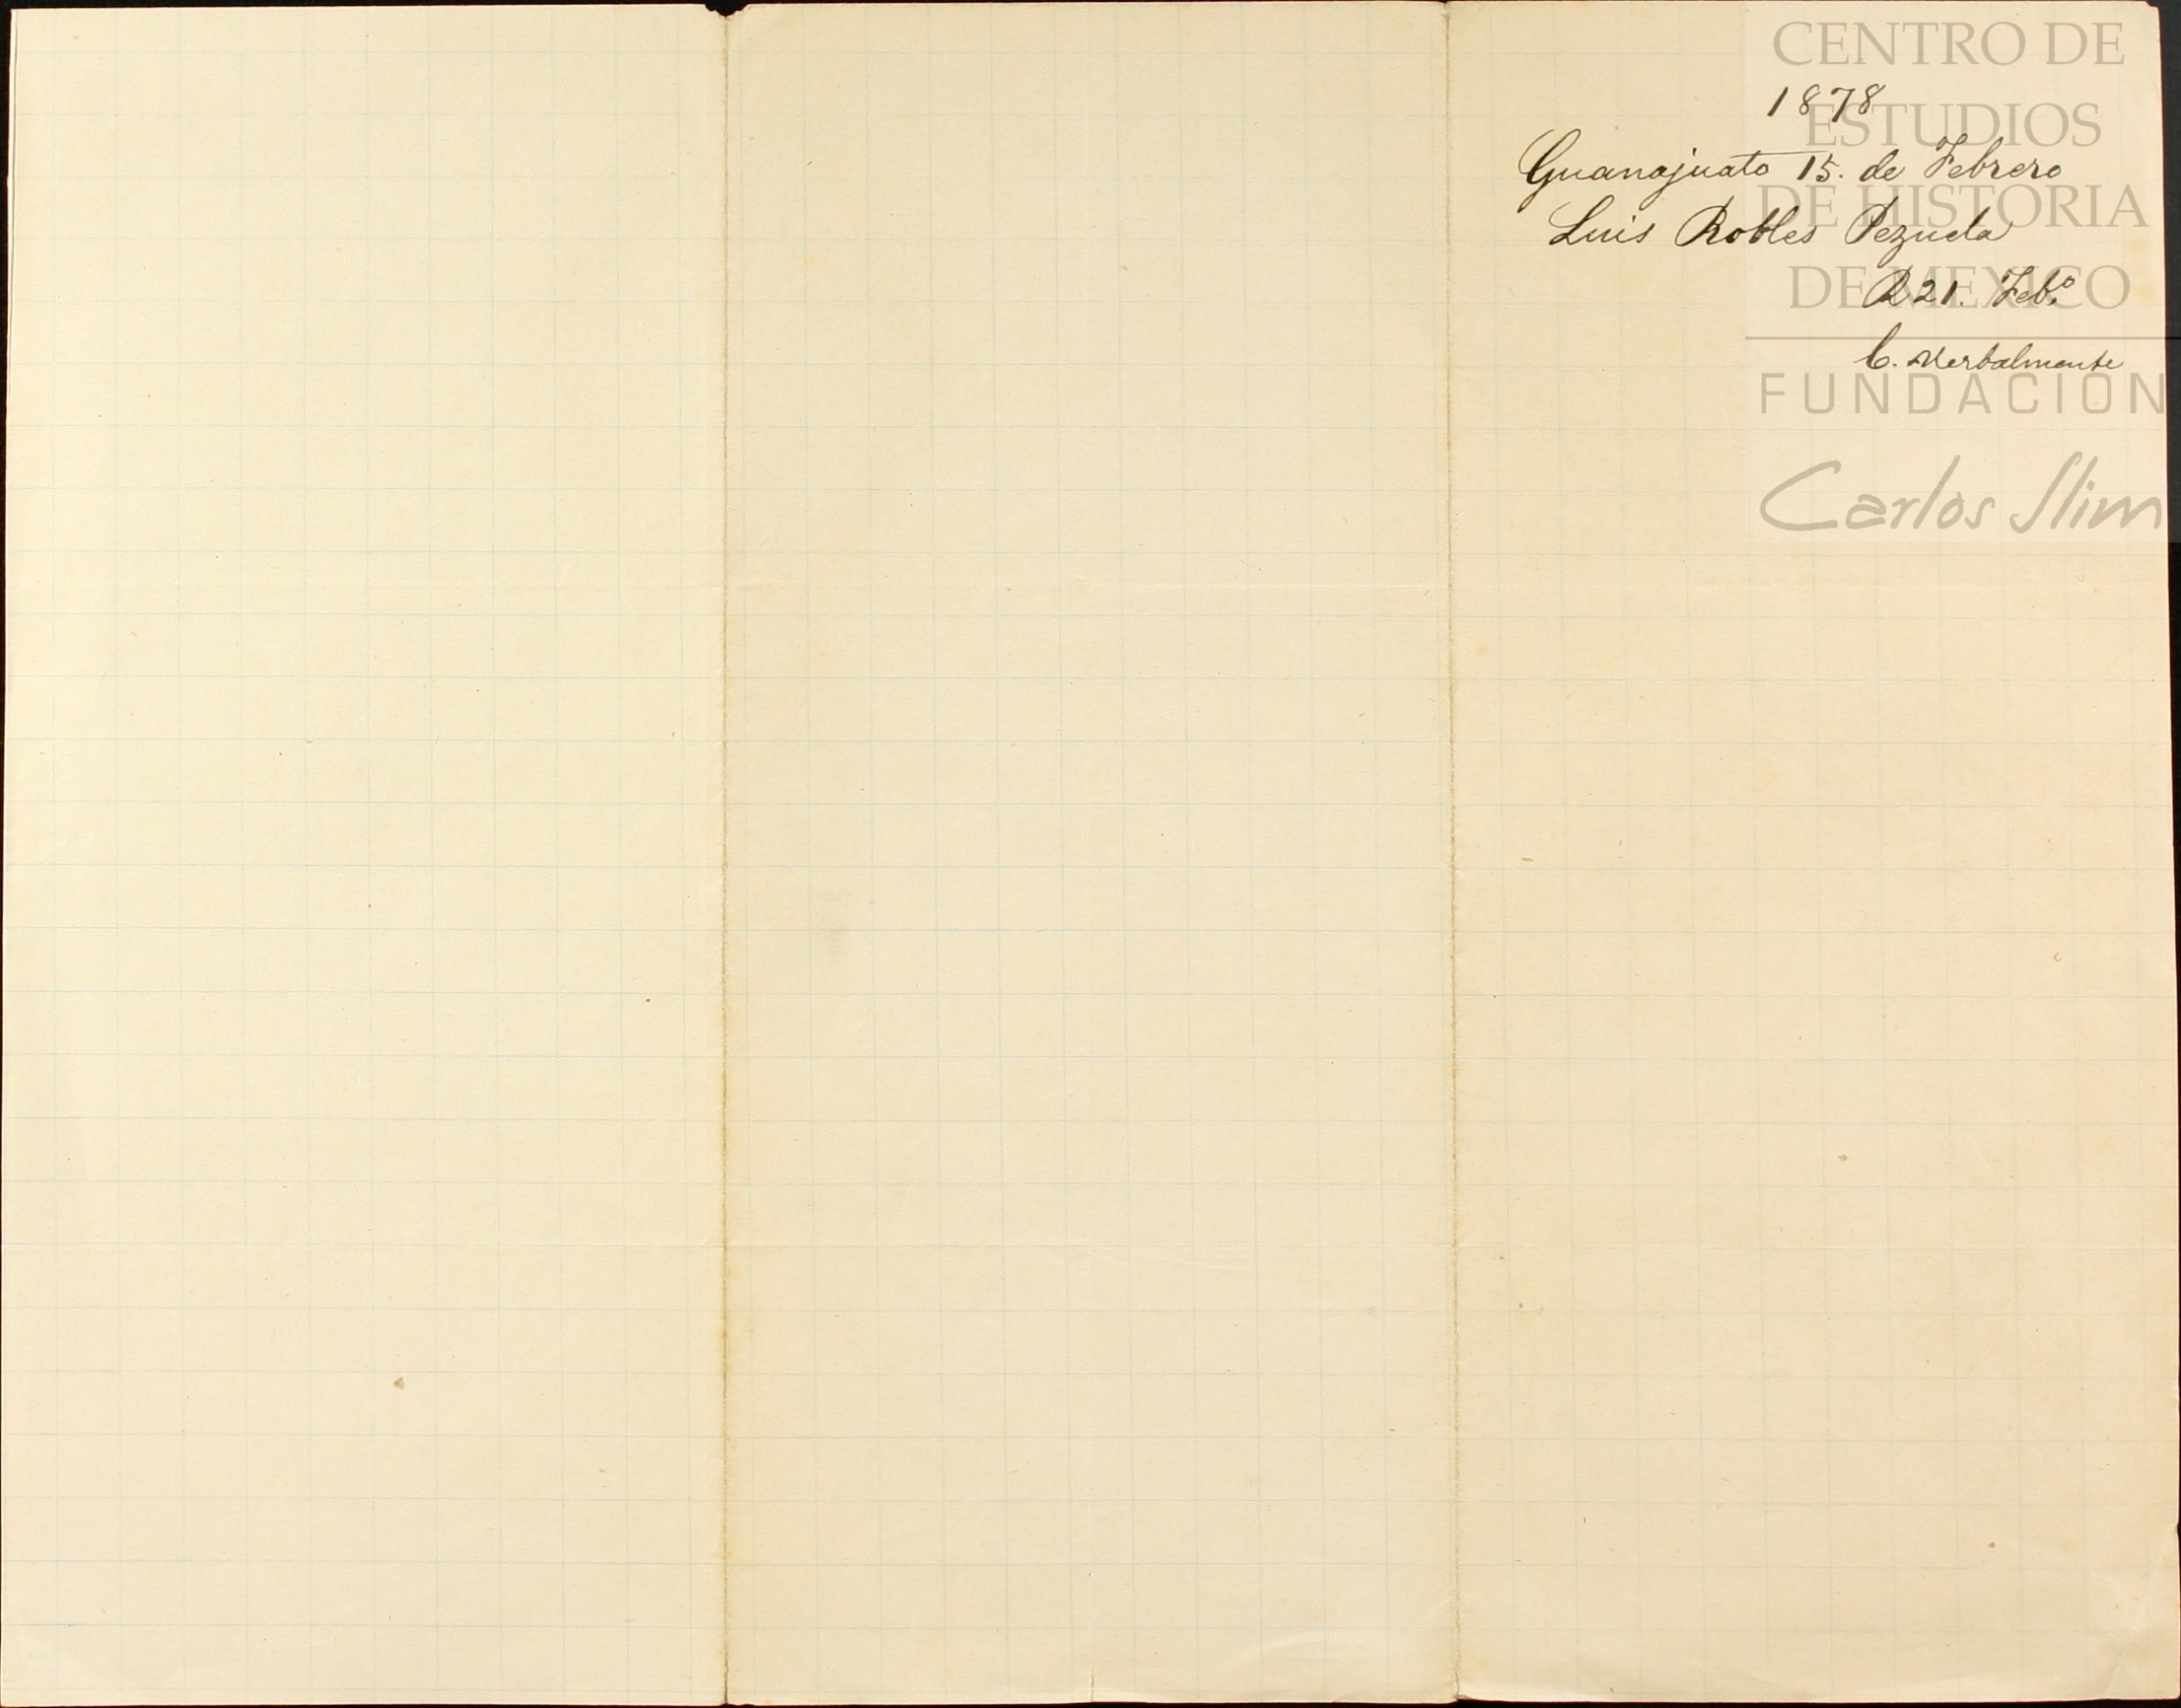 1878
Guanajuato 15. de Febrero
Luis Robles Pezuela
R 21. Feb.º
C. Verbalmente
CENTRO DE
ESTUDIOS
DE HISTORIA
DE MEXICO
FUNDACIÓN
Carlos Slim